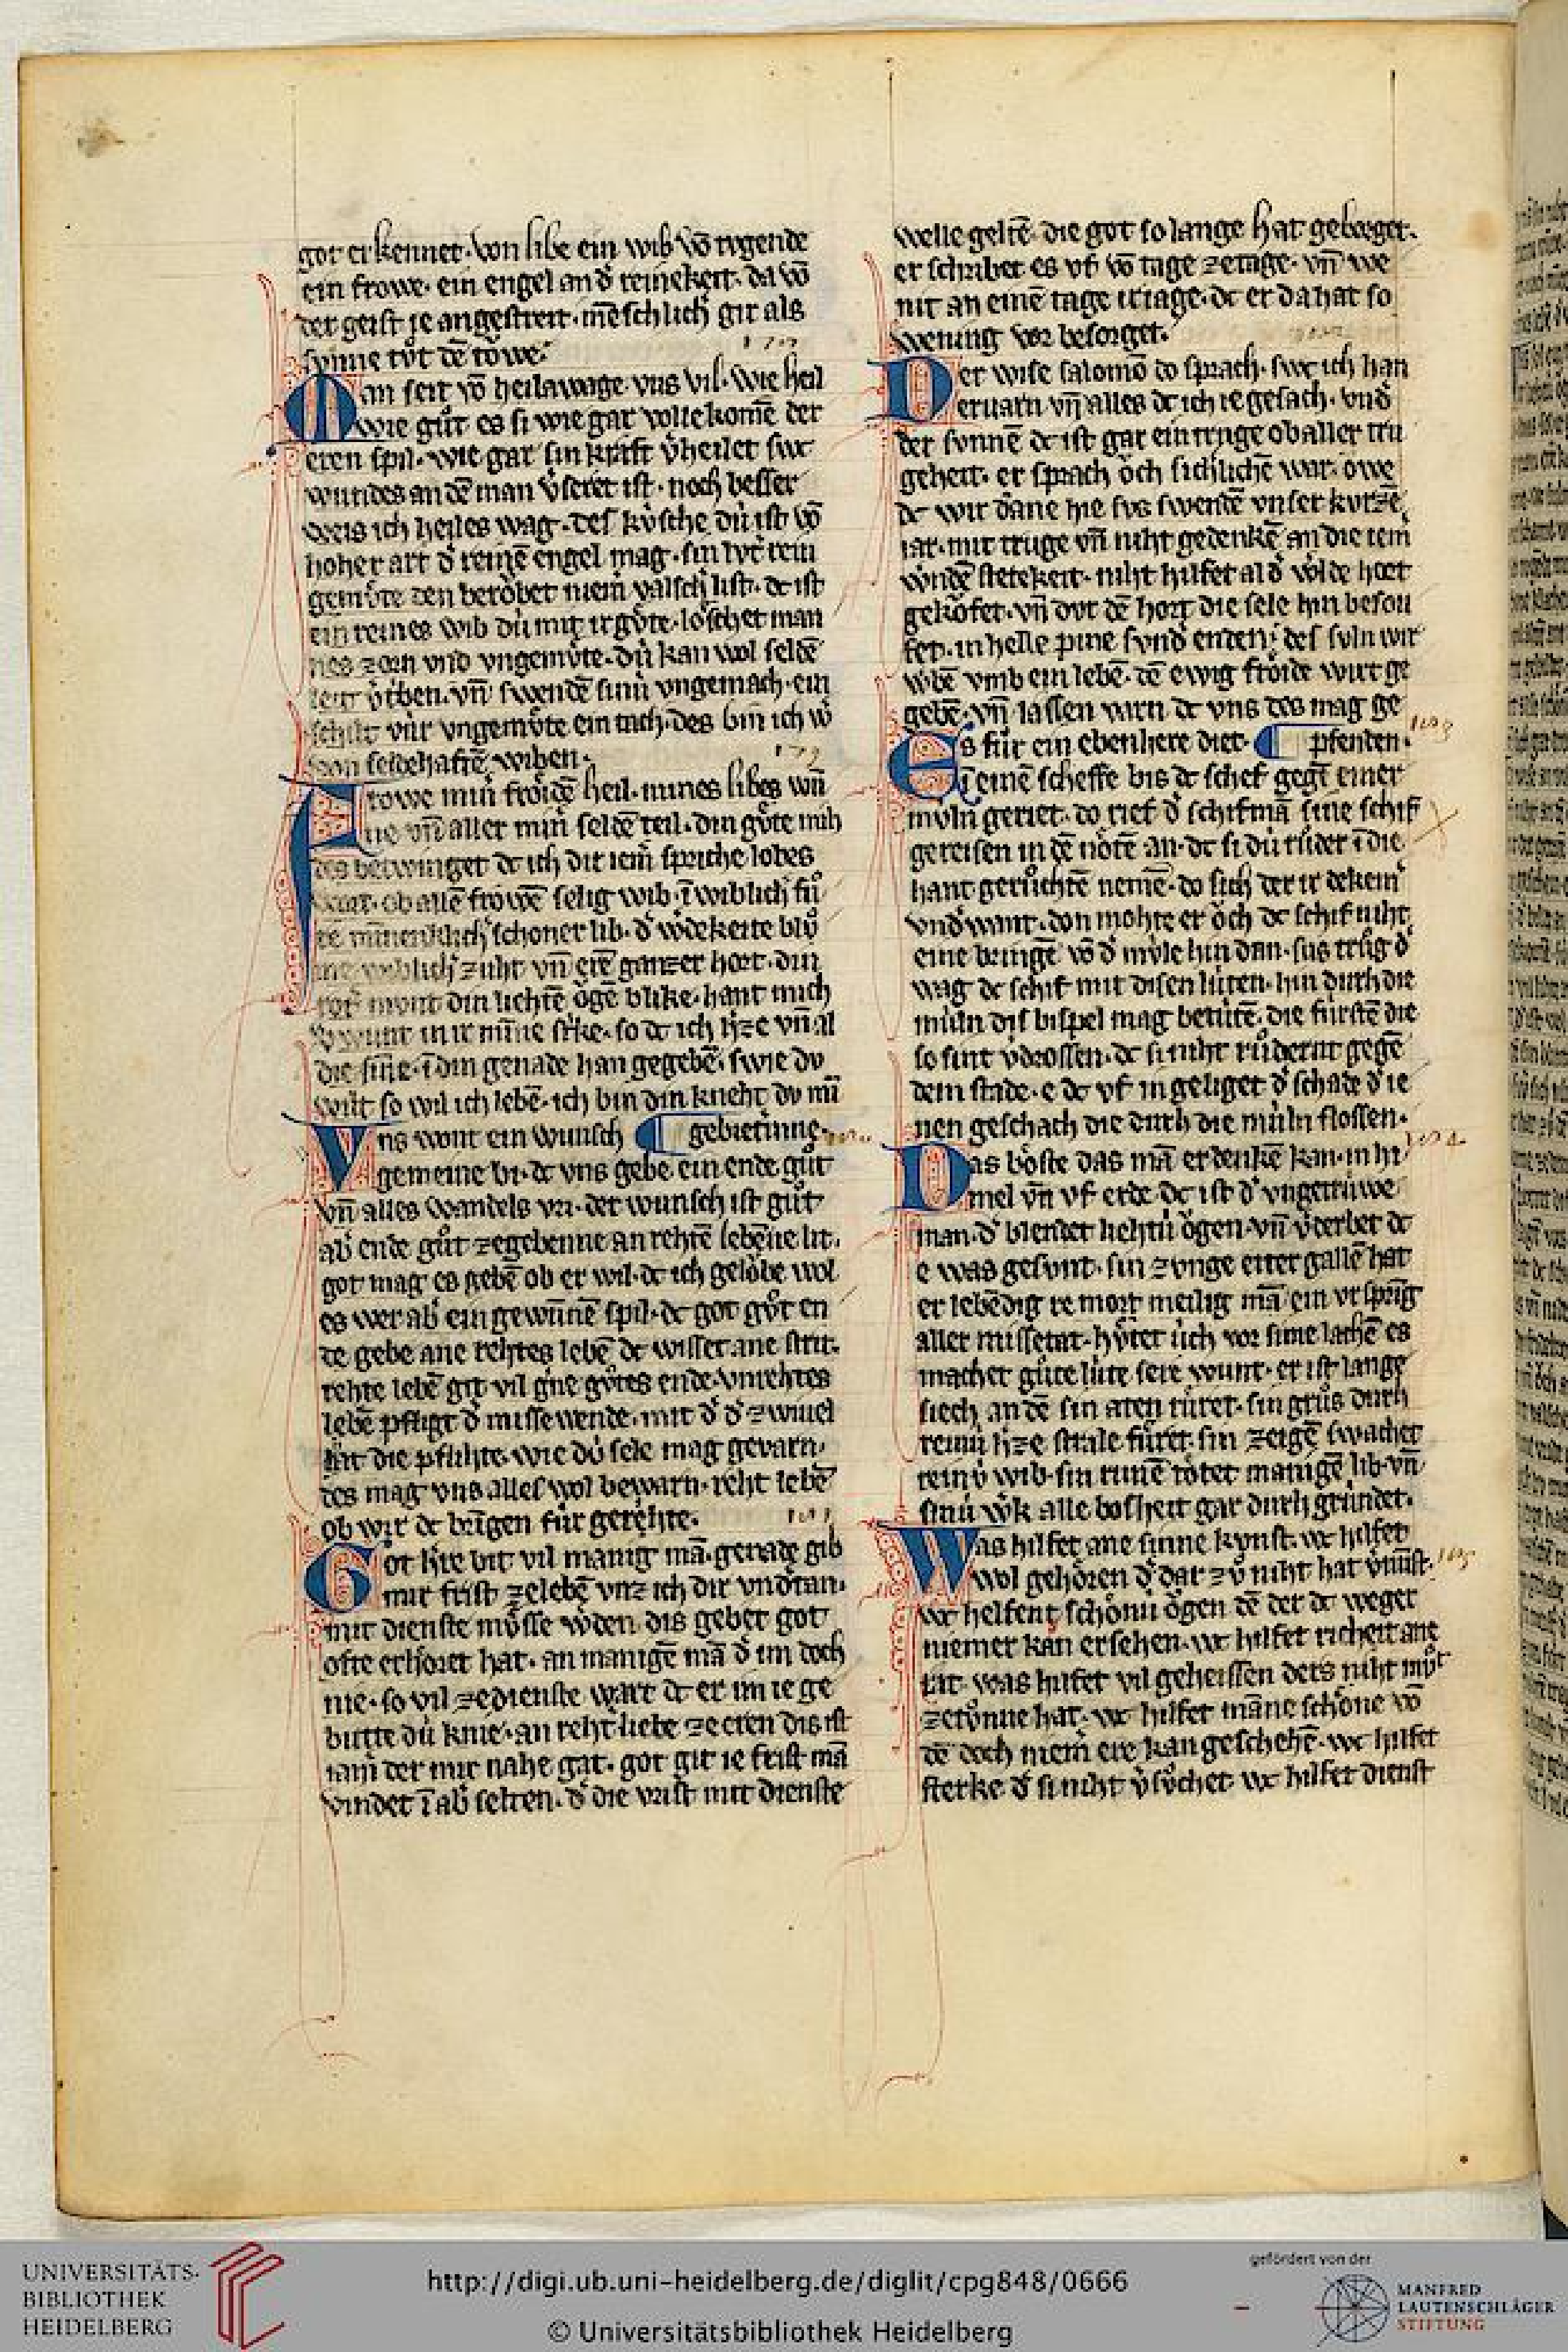 got erkennet. von libe ein wib vō tvgende
ein frowe. ein engel an d̄ reinekeit. da vō
der geist ie angestreit. mēschlich gir als
svnne tv̊t dē towe.
Man seit vō heilawage vns vil. wie heil
wie gůt es si wie gar vollekomē der
eren spil. wie gar sin kraft v̄heilet swc
wundes an dē man v̄seret ist. noch besser
weis ich heiles wag. des kv̍sche dú ist vō
hoher art d̄ reinē engel mag. sin lvt̄ rein
gemv̍te den berǒbet niem̄ valsch list. dc ist
ein reines wib dú mit ir gv̍te. lőschet man
nes zorn vnd vngemv̍te. dú kan wol seldē
leit v̄triben. vn̄ swendē sinú vngemach. ein
schilt vúr vngemv̍te ein tach. des bin ich w̄
von seldehaftē wiben.
Frowe minr frőidē heil. mines libes wū
ne vn̄ aller minr seldē teil. din gv̍te mih
des betwinget dc ich dir iem̄ spriche lobes
wort. ob allē frowē selig wib. ī wiblich fů
re miñenklich schoner lib. d̄ w̄dekeite blů
me. wiblich zuht vn̄ erē ganzer hort. din
rot̄ mvnt din liehtē ǒgē blike. hant mich
v̄wunt in ir miñe strike. so dc ich h̄ze vn̄ al
die siñe. ī din genade han gegebē. swie dv
wilt so wil ich lebē. ich bin din kneht dv min
Vns wont ein wunsch ¶ gebietiñne.
gemeine bi. dc vns gebe ein ende gůt
vn̄ alles wandels vri. der wunsch ist gůt
ab̄ ende gůt zegebenne an rehtē lebēne lit.
got mag es gebē ob er wil. dc ich gelǒbe wol
es wer ab̄ ein gewuñē spil. dc got gůt en
de gebe ane rehtes lebē dc wisset ane strit.
rehte lebē git vil ḡne gůtes ende. vnrehtes
lebē pfligt d̄ missewende. mit d̄ d̄ zwiuel
hat die pflihte. wie dú sele mag gevarn.
des mag vns alles wol bewarn. reht lebē
ob wir dc brīgen fúr gerehte.
Got h̄re bit vil manig mā. genade gib
mir frist zelebē vnz ich dir vnd̄tan.
mit dienste mv̍sse w̄den. dis gebet got
ofte erhőret hat. an manigē mā d̄ im doch
nie. so vil zedienste wart dc er im ie ge
bútte dú knie. an reht liebe ze eren dis ist
iam̄ der mir nahe gat. got git ie frist mā
vindet ī ab̄ selten. d̄ die vrist mit dienste
welle geltē. die got so lange hat geborget.
er schribet es vf vō tage zetage. vn̄ we
nit an einē tage ir iage. dc er da hat so
wening vor besorget.
Der wise salomō do sprach. swc ich han
eruarn vn̄ alles dc ich ie gesach. vnd̄
der sonnē dc ist gar ein trvge ob aller trv
geheit. er sprach ǒch sichlichē war. owe
dc wir dāne hie svs swendē vnser kvrzē
iar. mit truge vn̄ niht gedenkē an die iem̄
w̄ndē stetekeit. niht hilfet al d̄ w̄lde hort
gekǒfet. vn̄ dvr dē hort die sele hin besou
fet. in helle pine svnd̄ enden. des svln wir
w̄bē vmb ein lebē. dē ewig frőide wirt ge
gebē. vn̄ lassen varn dc vns des mag ge
Es fůr ein ebenhere diet. ¶ pfenden.
ī einē scheffe bis dc schef gegē einer
mvln geriet. do rief d̄ schifmā sine schif
gereisen in dē nőtē an. dc si dú růder ī die
hant gerůchtē nemē. do sich der ir dekein̄
vnd̄want. don mohte er ǒch dc schif niht
eine bringē vō d̄ mv̍le hin dan. sus trůg d̄
wag dc schif mit disen lúten. hin durh die
múln dis bispel mag betútē. die fúrstē die
so sint v̄drossen. dc si niht růdernt gegē
dem stade. e dc vf in geliget d̄ schade d̄ ie
nen geschach die durh die múln flossen.
Das bőste das mā erdenkē kan. in hi
mel vn̄ vf erde dc ist d̄ vngetrúwe
man. d̄ blendet liehtú ǒgen. vn̄ v̄derbet dc
e was gesvnt. sin zvnge eiter gallē hat
er lebēdig re mort meilig mā ein vrsprīg
aller missetat. hv̍tet úch vor sime lachē es
machet gůte lúte sere wunt. er ist lange
siech an dē sin aten růret. sin grůs durh
reinú h̄ze strale fůret. sin zeigē swachet
reinú wib. sin runē tőtet manigē lib. vn̄
sinú w̄k alle bosheit gar durh gründet.
Was hilfet ane sinne kvnst. wc hilfet
wol gehőren d̄ dar zů niht hat v̄nunst.
wc helfent schőnú ǒgen dē der dc weger
niemer kan ersehen. wc hilfet richeit ane
rat. was hilfet vil geheissen ders niht můt
zetůnne hat. wc hilfet māne schőne vō
dē doch niem̄ ere kan geschehē. wc hilfet
sterke d̄ si niht v̄sůchet. wc hilfet dienst
UNIVERSITÄTS-
BIBLIOTHEK
HEIDELBERG
http://digi.ub.uni-heidelberg.de/diglit/cpg848/0666
© Universitätsbibliothek Heidelberg
gefördert von der
MANFRED
LAUTENSCHLÄGER
STIFTUNG